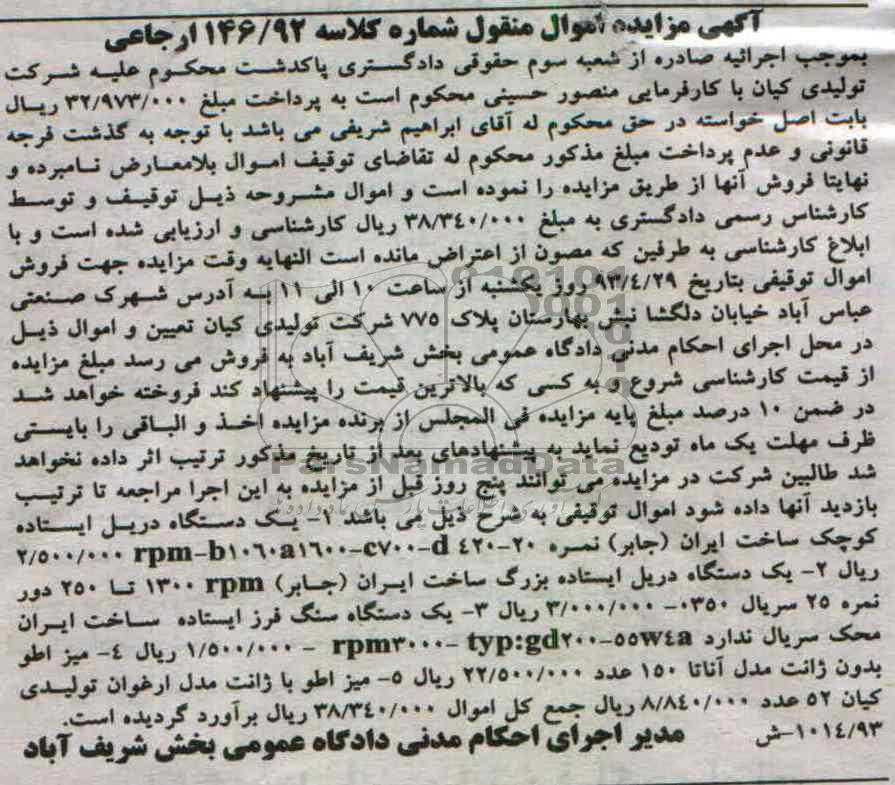 آگهی مزایده اموال منقول شماره کلاسه ۱۴۶/۹۲ ارجاعی
بموجب اجرائیه صادره از شعبه سوم حقوقی دادگستری پاکدشت محکوم علیه شرکت
تولیدی کیان با کارفرمایی منصور حسینی محکوم است به پرداخت مبلغ ۳۲/۹۷۳/۰۰۰ ریال
بابت اصل خواسته در حق محکوم له آقای ابراهیم شریفی می باشد با توجه به گذشت فرجه
قانونی و عدم پرداخت مبلغ مذکور محکوم له تقاضای توقیف اموال بلامعارض نامبرده و
نهایتا فروش آنها از طریق مزایده را نموده است و اموال مشروحه ذیل توقیف و توسط
کارشناس رسمی دادگستری به مبلغ ۳۸/۳۴۰/۰۰۰ ریال کارشناسی و ارزیابی شده است و با
ابلاغ کارشناسی به طرفین که مصون از اعتراض مانده است النهایه وقت مزایده جهت فروش
اموال توقیفی بتاریخ ۹۳/٤/۲۹ روز یکشنبه از ساعت ۱۰ الی ۱۱ به آدرس شهرک صنعتی
عباس آباد خیابان دلگشا نبش بهارستان پلاک ۷۷۵ شرکت تولیدی کیان تعیین و اموال ذیل
در محل اجرای احکام مدنی دادگاه عمومی بخش شریف آباد به فروش می رسد مبلغ مزایده
از قیمت کارشناسی شروع و به کسی که بالاترین قیمت را پیشنهاد کند فروخته خواهد شد
در ضمن ۱۰ درصد مبلغ پایه مزایده فی المجلس از برنده مزایده اخذ و الباقی را بایستی
ظرف مهلت یک ماه تودیع نماید به پیشنهادهای بعد از تاریخ مذکور ترتیب اثر داده نخواهد
شد طالبین شرکت در مزایده می توانند پنج روز قبل از مزایده به این اجرا مراجعه تا ترتیب
بازدید آنها داده شود اموال توقیفی به شرح ذیل می باشد ۱- یک دستگاه دریل ایستاده
کوچک ساخت ایران (جابر) نمره ۲۰-٤۲۰ rpm-b۱۰۶۰a۱۶۰۰-c۷۰۰-d ۲/۵۰۰/۰۰۰
ریال ۲- یک دستگاه دریل ایستاده بزرگ ساخت ایران (جابر) rpm ۱۳۰۰ تا ۲۵۰ دور
نمره ۲۵ سریال ۰۳۵۰- ۳/۰۰۰/۰۰۰ ریال ۳- یک دستگاه سنگ فرز ایستاده ساخت ایران
محک سریال ندارد typ:gd۲۰۰-۵۵w٤a -rpm۳۰۰۰ - ۱/۵۰۰/۰۰۰ ریال ٤- میز اطو
بدون ژانت مدل آناتا ۱۵۰ عدد ۲۲/۵۰۰/۰۰۰ ریال ۵- میز اطو با ژانت مدل ارغوان تولیدی
کیان ۵۲ عدد ۸/۸٤۰/۰۰۰ ریال جمع کل اموال ۳۸/۳٤۰/۰۰۰ ریال برآورد گردیده است.
۱۰۱٤/۹۳-ش مدیر اجرای احکام مدنی دادگاه عمومی بخش شریف آباد
ParsNamadData